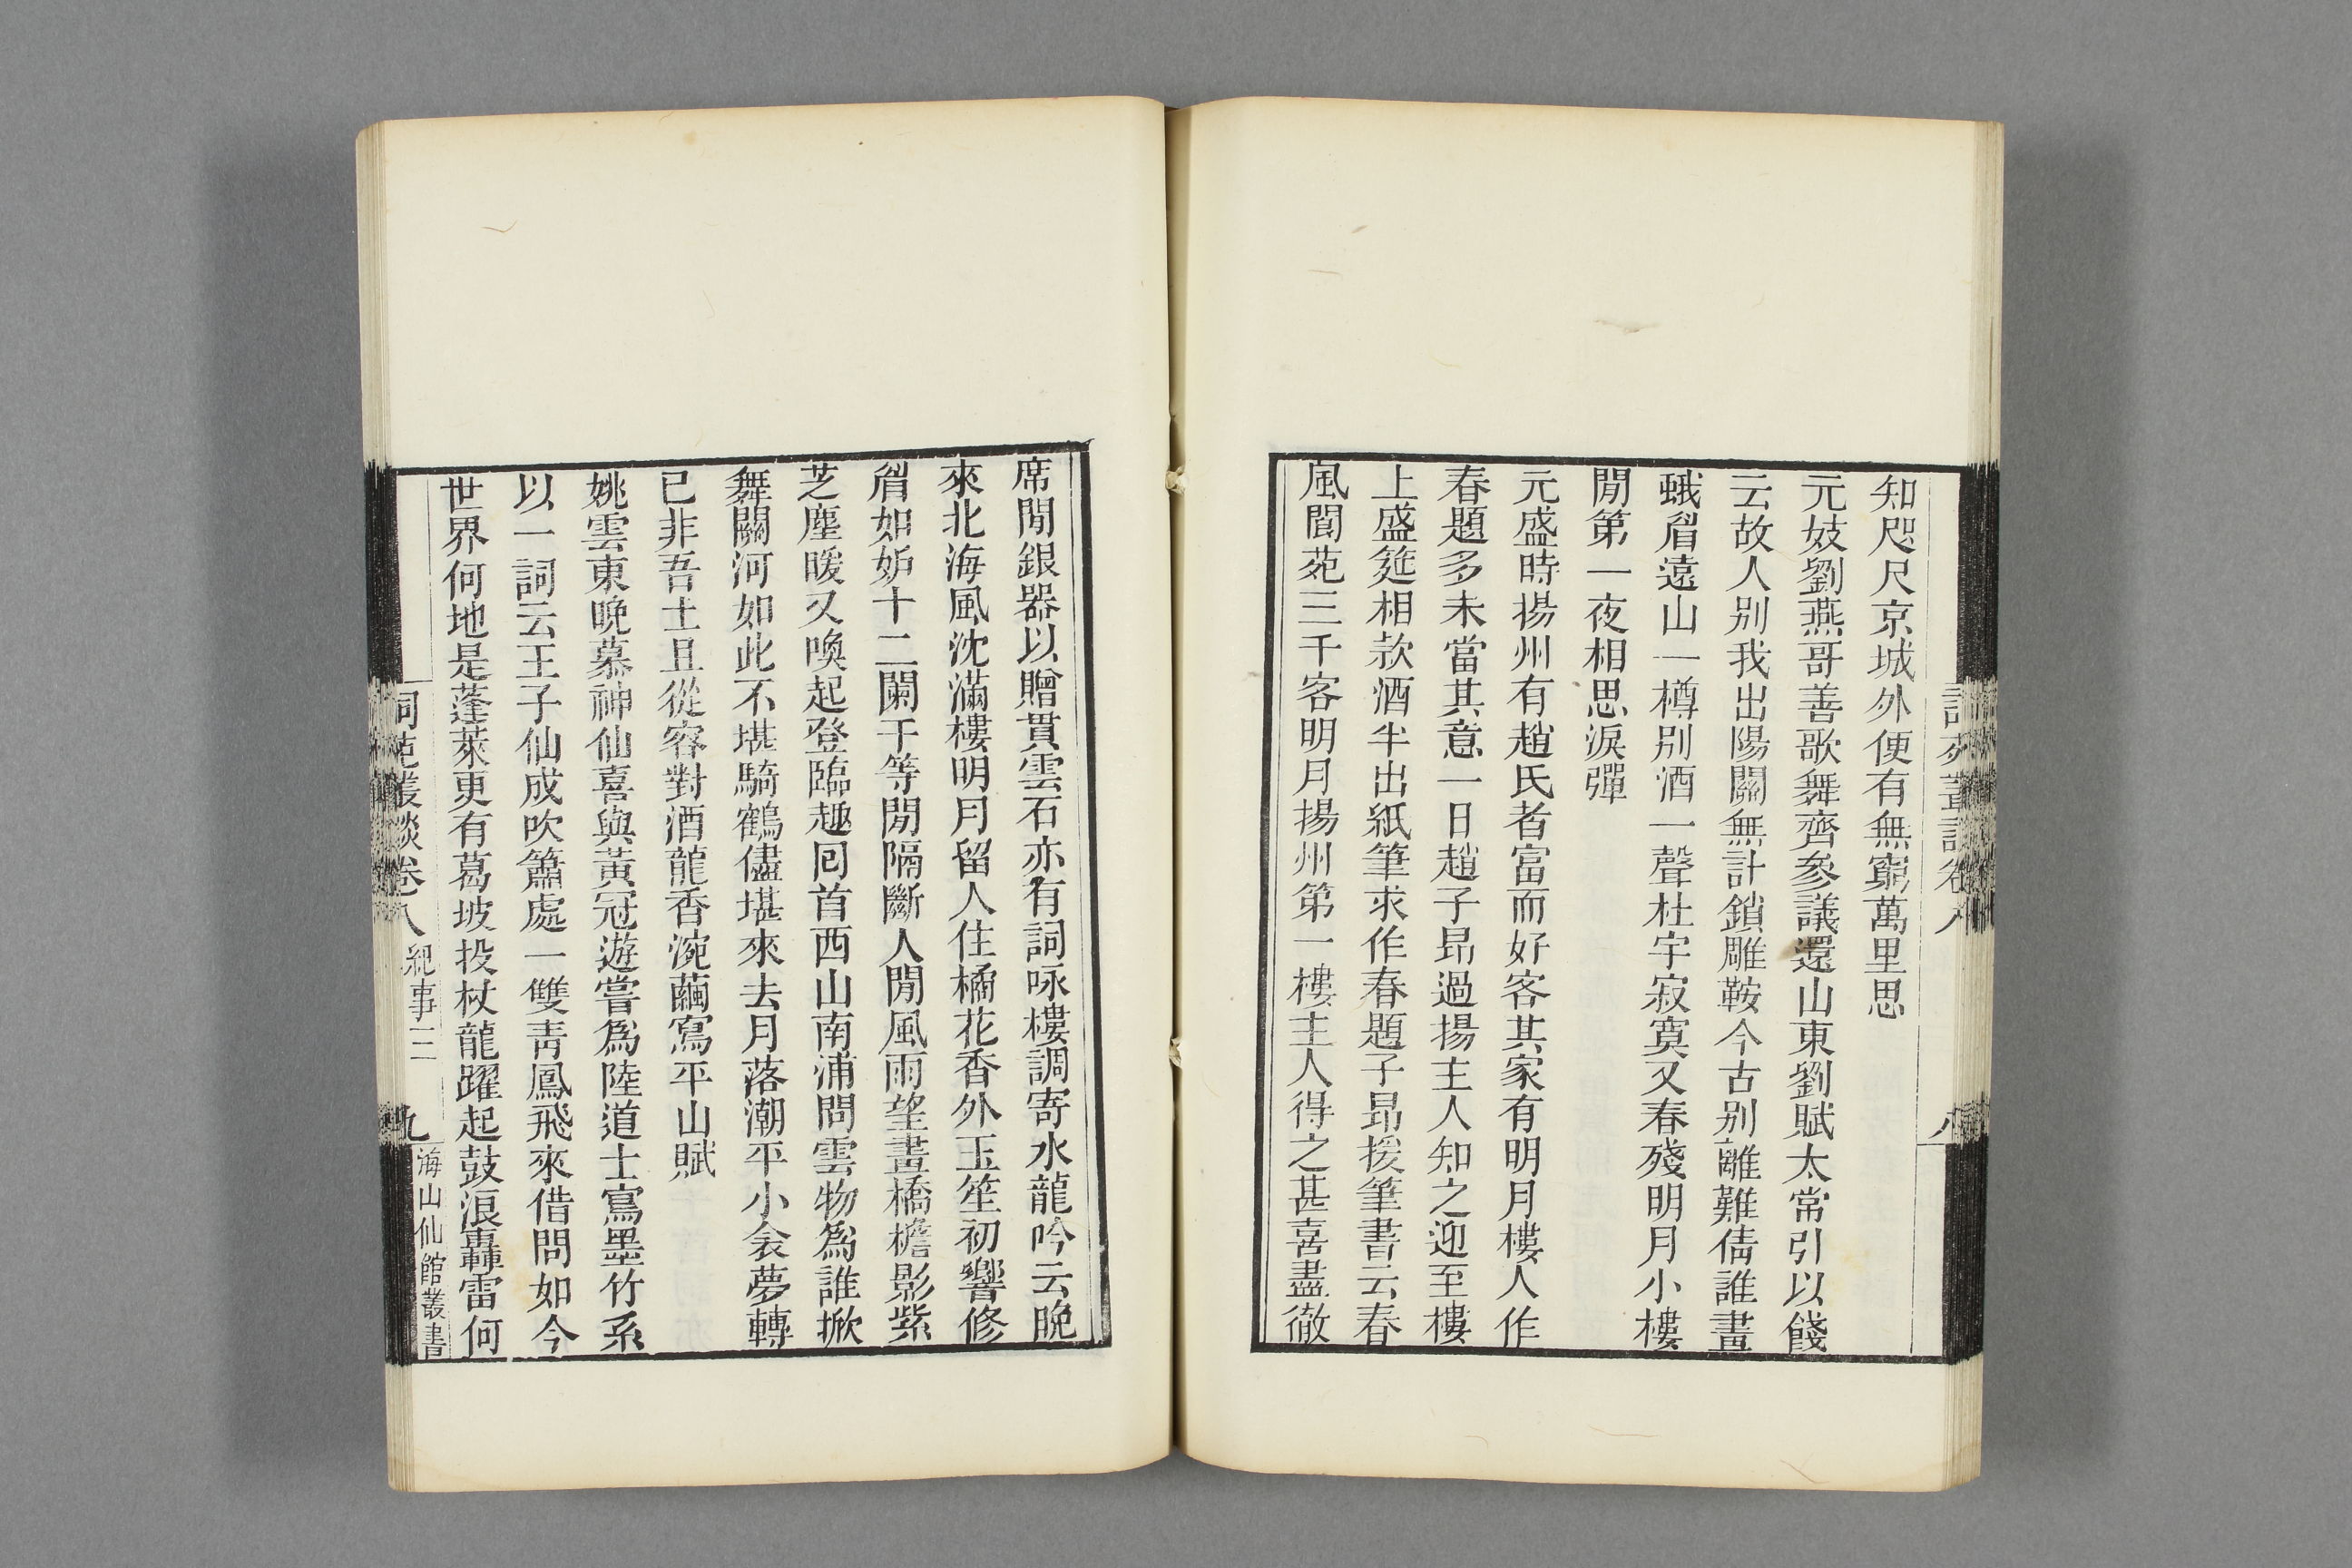 知咫尺京城外便有無窮萬里思
元妓劉燕哥善歌舞齊參議還山東劉賦太常引以餞
云故人别我出陽關無計鎖雕鞍今古别離難倩誰畫
蛾眉遠山一樽别酒一聲杜宇寂寞又春殘明月小樓
閒第一夜相思淚彈
元盛時揚州有趙氏者富而好客其家有明月樓人作
春題多未當其意一日趙子昻過揚主人知之迎至樓
上盛筵相款酒半出紙筆求作春題子昻援筆書云春
風閬苑三千客明月揚州第一樓主人得之甚喜盡徹
席閒銀器以贈貫雲石亦有詞咏樓調寄水龍吟云晚
來北海風沈滿樓明月留人住橘花香外玉笙初響修
眉如妒十二闌干等閒隔斷人閒風雨望畫橋檐影紫
芝塵暖又喚起登臨趣囘首西山南浦問雲物爲誰掀
舞關河如此不堪騎鶴儘堪來去月落潮平小衾夢轉
已非吾土且從容對酒龍香涴繭寫平山賦
姚雲東晚慕神仙喜與黃冠遊嘗爲陸道士寫墨竹系
以一詞云王子仙成吹簫處一雙靑鳳飛來借問如今
世界何地是蓬萊更有葛坡投杖龍躍起鼓浪轟雷何
詞苑叢談卷八 紀事三 九 海山仙館叢書